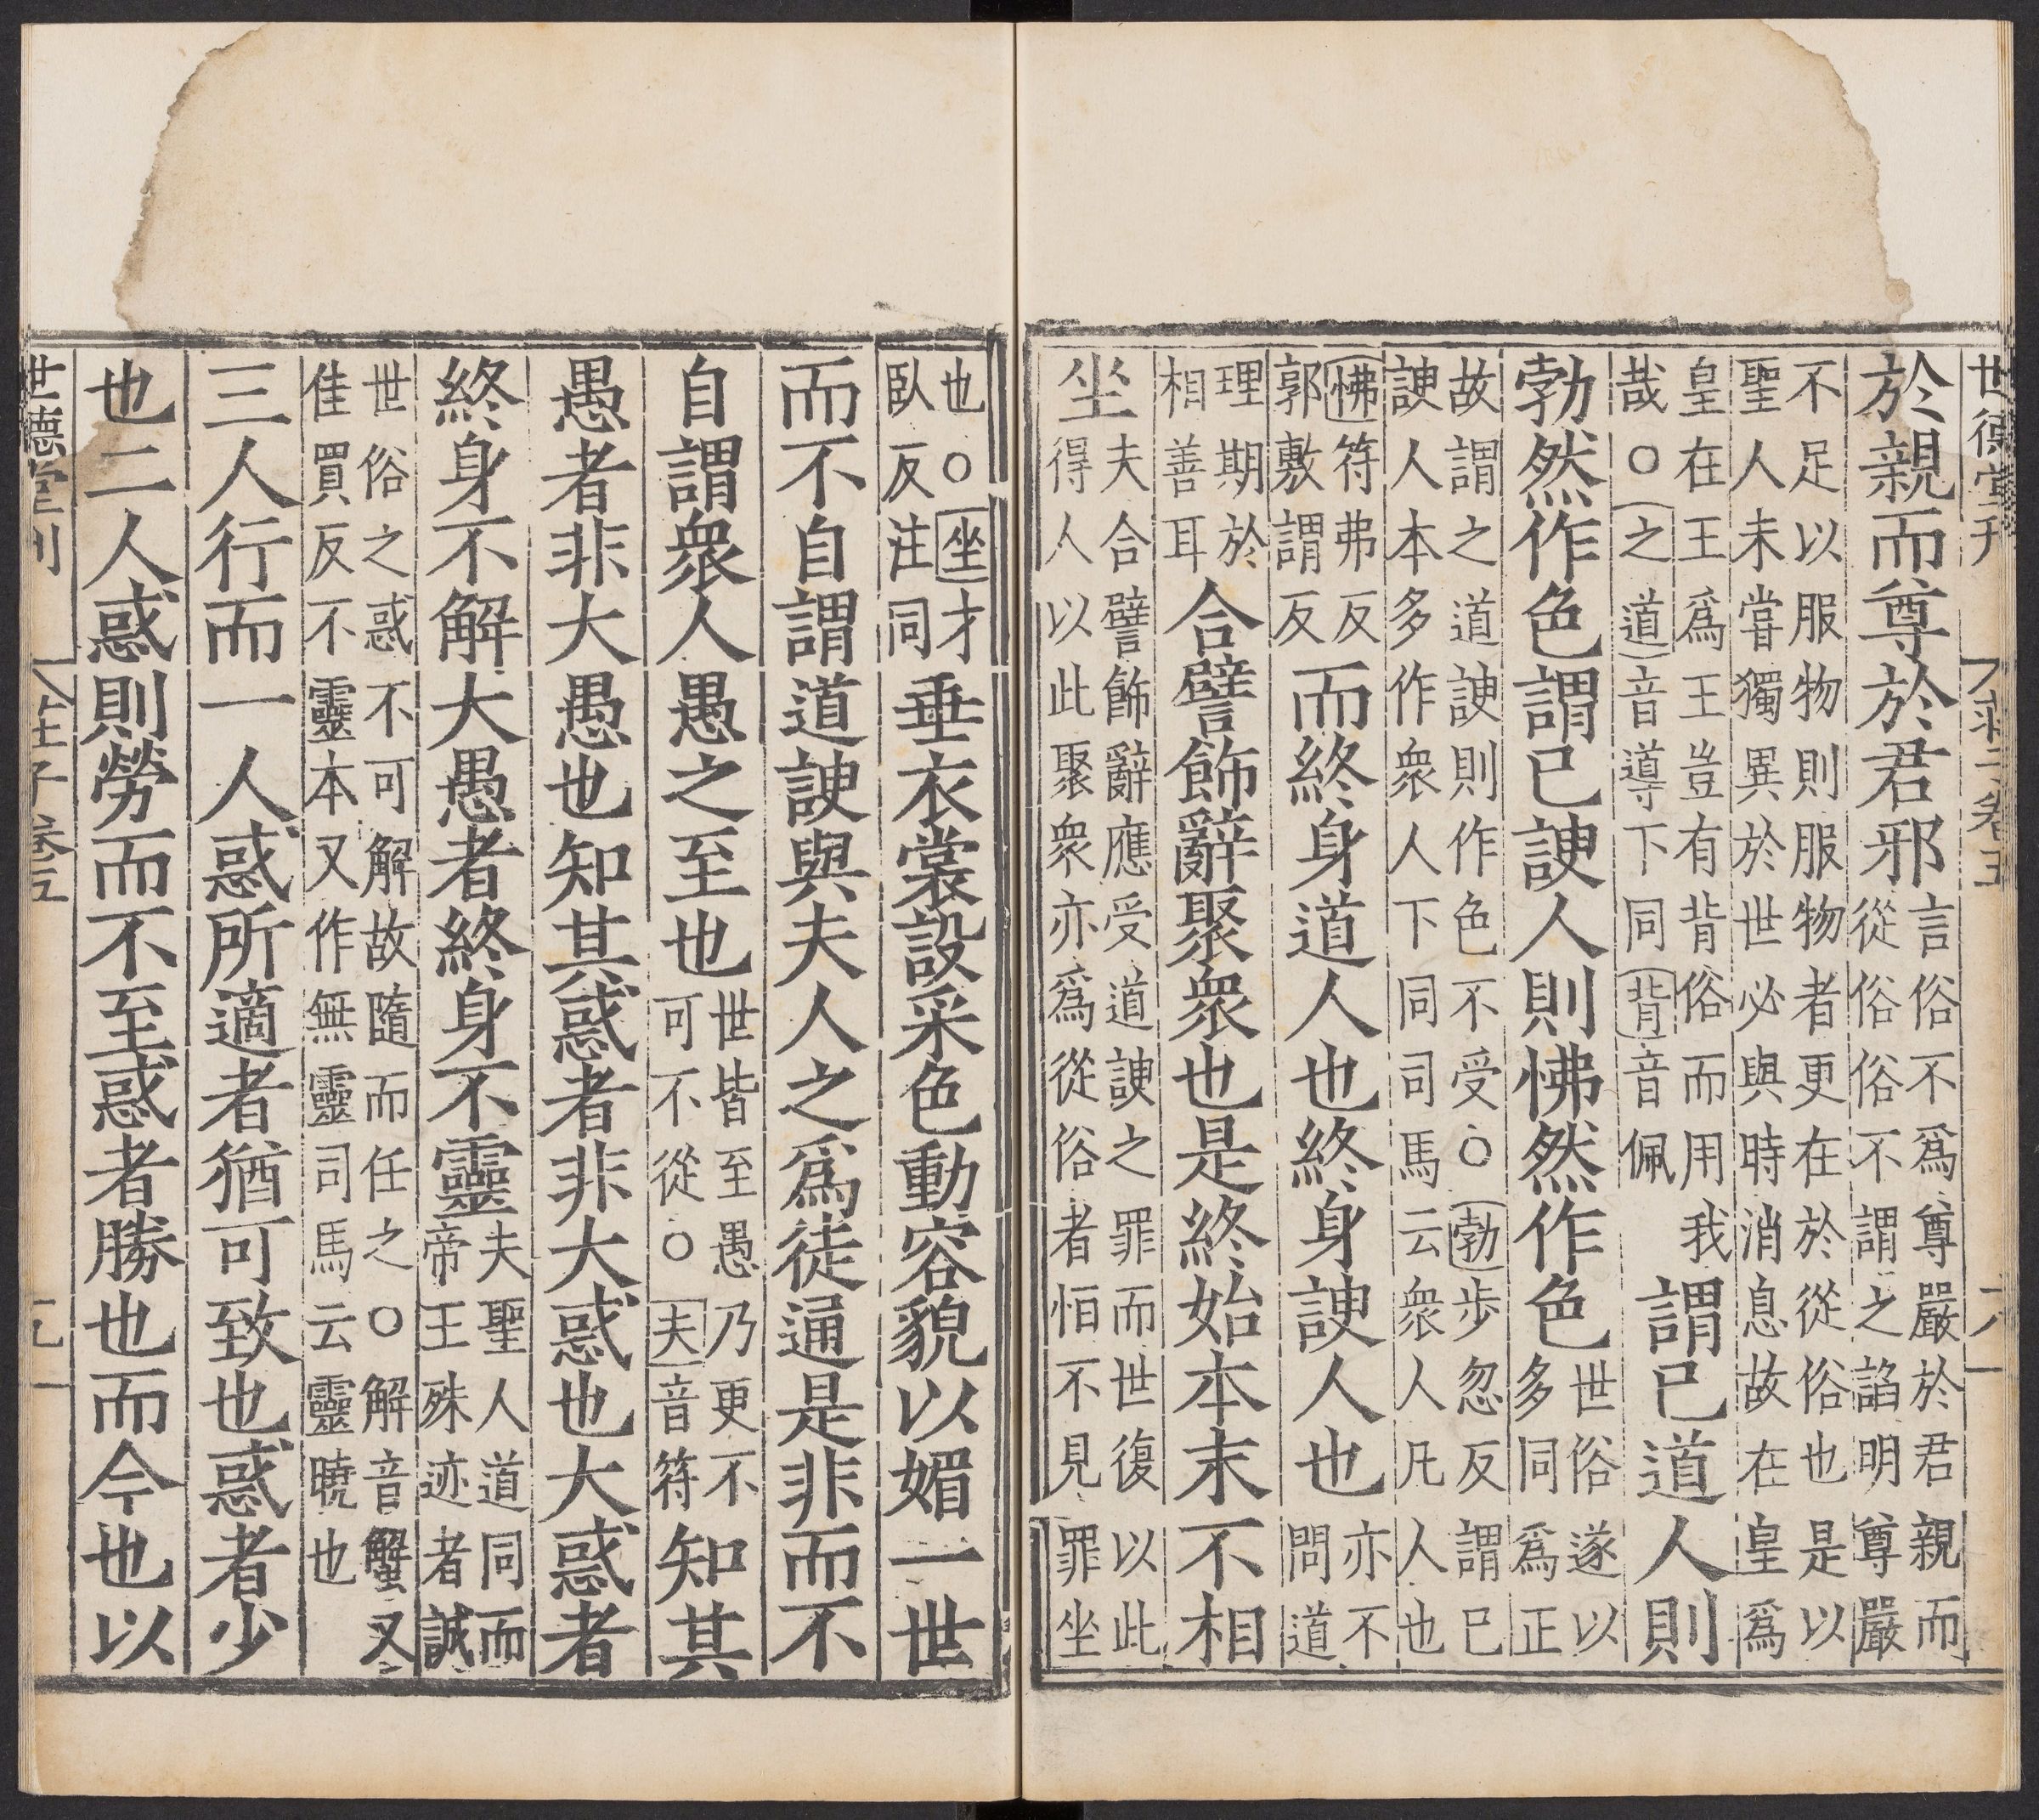 世德堂刊
莊子卷五
六
於親而尊於君邪言俗不爲尊嚴於君親而
從俗俗不謂之諂明尊嚴
不足以服物則服物者更在於從俗也是以
聖人未嘗獨異於世必與時消息故在皇爲
皇在王爲王豈有背俗而用我
哉○之道音導下同背音佩
謂已道人則
勃然作色謂已諛人則怫然作色世俗遂以
多同爲正
故謂之道諛則作色不受○勃步忽反謂已
諛人本多作衆人下同司馬云衆人凡人也
怫符弗反
郭敷謂反
而終身道人也終身諛人也亦不
問道
理期於
相善耳
合譬飾辭聚衆也是終始本末不相
坐夫合譬飾辭應受道諛之罪而世復以此
得人以此聚衆亦爲從俗者恒不見罪坐
也○坐才
臥反注同
垂衣裳設采色動容貌以媚一世
而不自謂道諛與夫人之爲徒通是非而不
自謂衆人愚之至也世皆至愚乃更不
可不從○夫音符
知其
愚者非大愚也知其惑者非大惑也大惑者
終身不解大愚者終身不靈夫聖人道同而
帝王殊迹者誠
世俗之惑不可解故隨而任之○解音蟹又
佳買反不靈本又作無靈司馬云靈曉也
三人行而一人惑所適者猶可致也惑者少
也二人惑則勞而不至惑者勝也而今也以
世德堂刊
莊子卷五